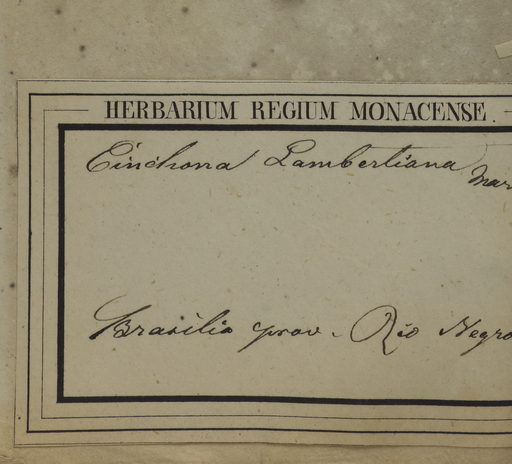 HERBARIUM REGIUM MONACENSE.
Cinchona Lambertiana Mar
Brasilia prov. Rio Negro